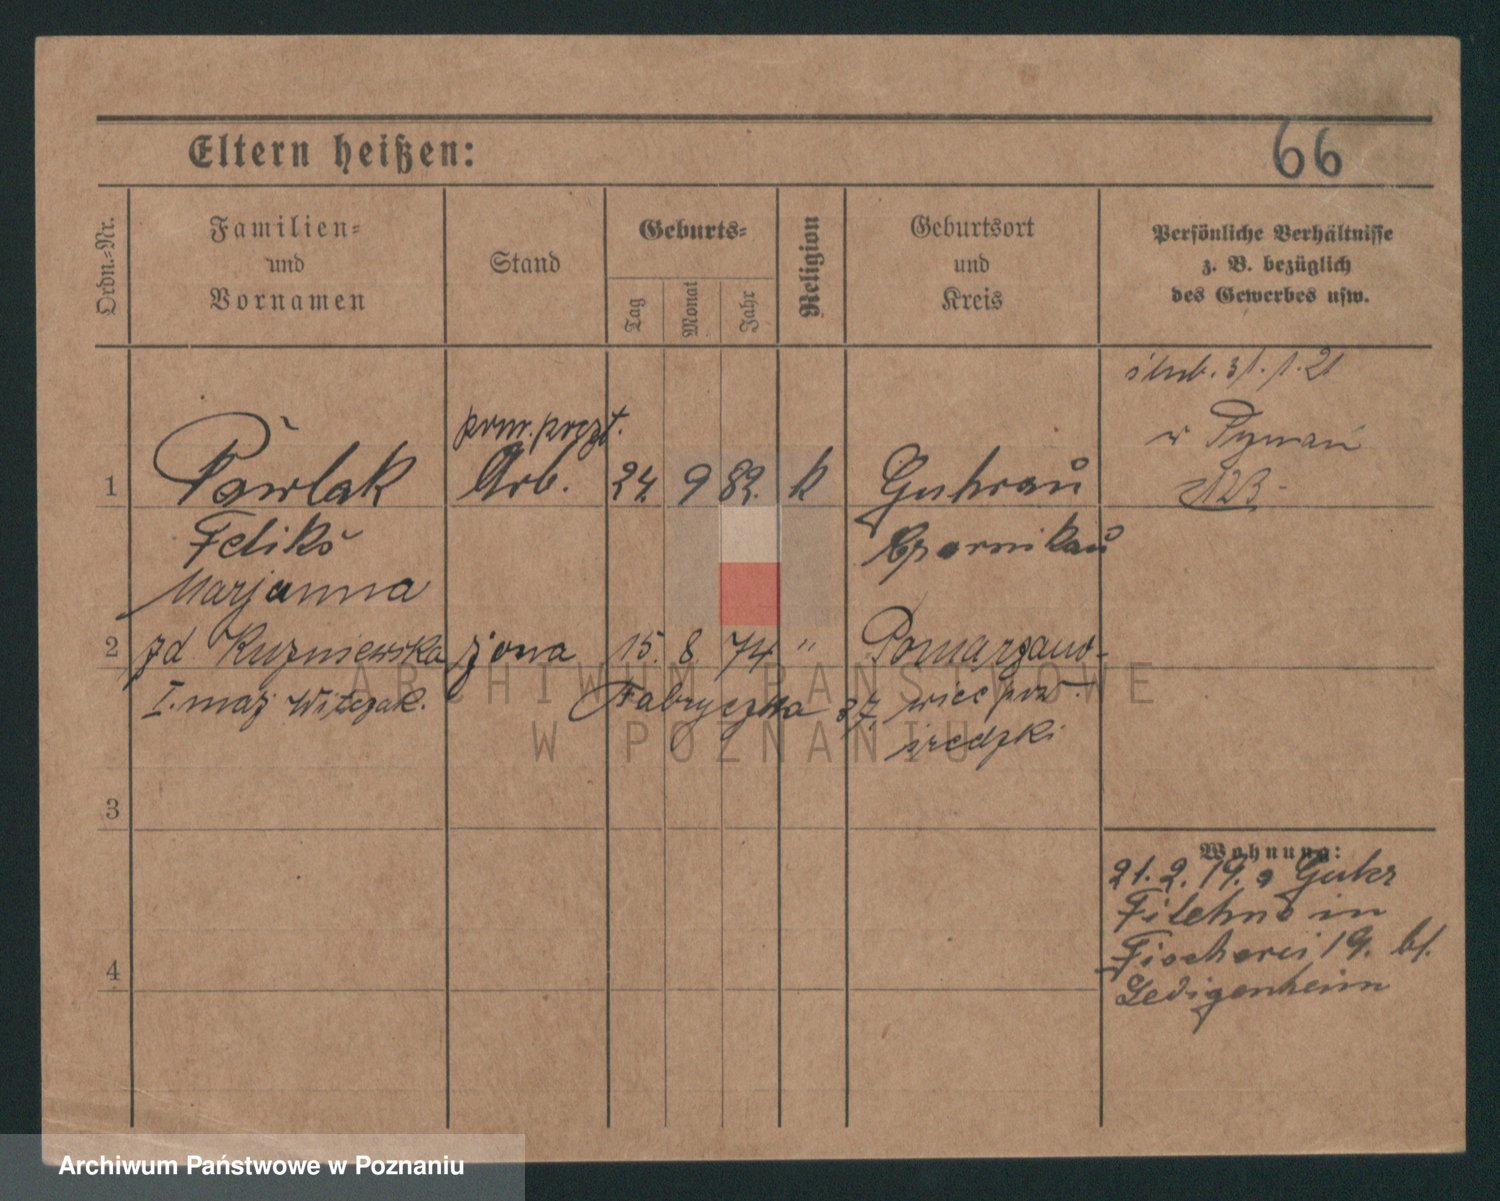 Eltern heißen:
66
Ordn.-Nr.
Familien-
und
Vornamen
Stand
Geburts-
Tag
Monat
Jahr
Religion
Geburtsort
und
Kreis
Persönliche Verhältnisse
z. B. bezüglich
des Gewerbes usw.
ślub. 31.1.21
w Poznań
pom. poczt.
1 Pawlak Arb. 24. 9 82. k Guhrau
Feliks Czarnikau
Marjanna
2 zd Kuzniewska żona 15. 8. 74 " Pomarzano-
I. mąż Witczak. Fabryczna 37. wice poz.
średzki
3
Wohnung:
21. 2. 19. a Guhr
Filehne in
Fischerei 19. bl.
4 Ledigenheim
ARCHIWUM PAŃSTWOWE
W POZNANIU
Archiwum Państwowe w Poznaniu